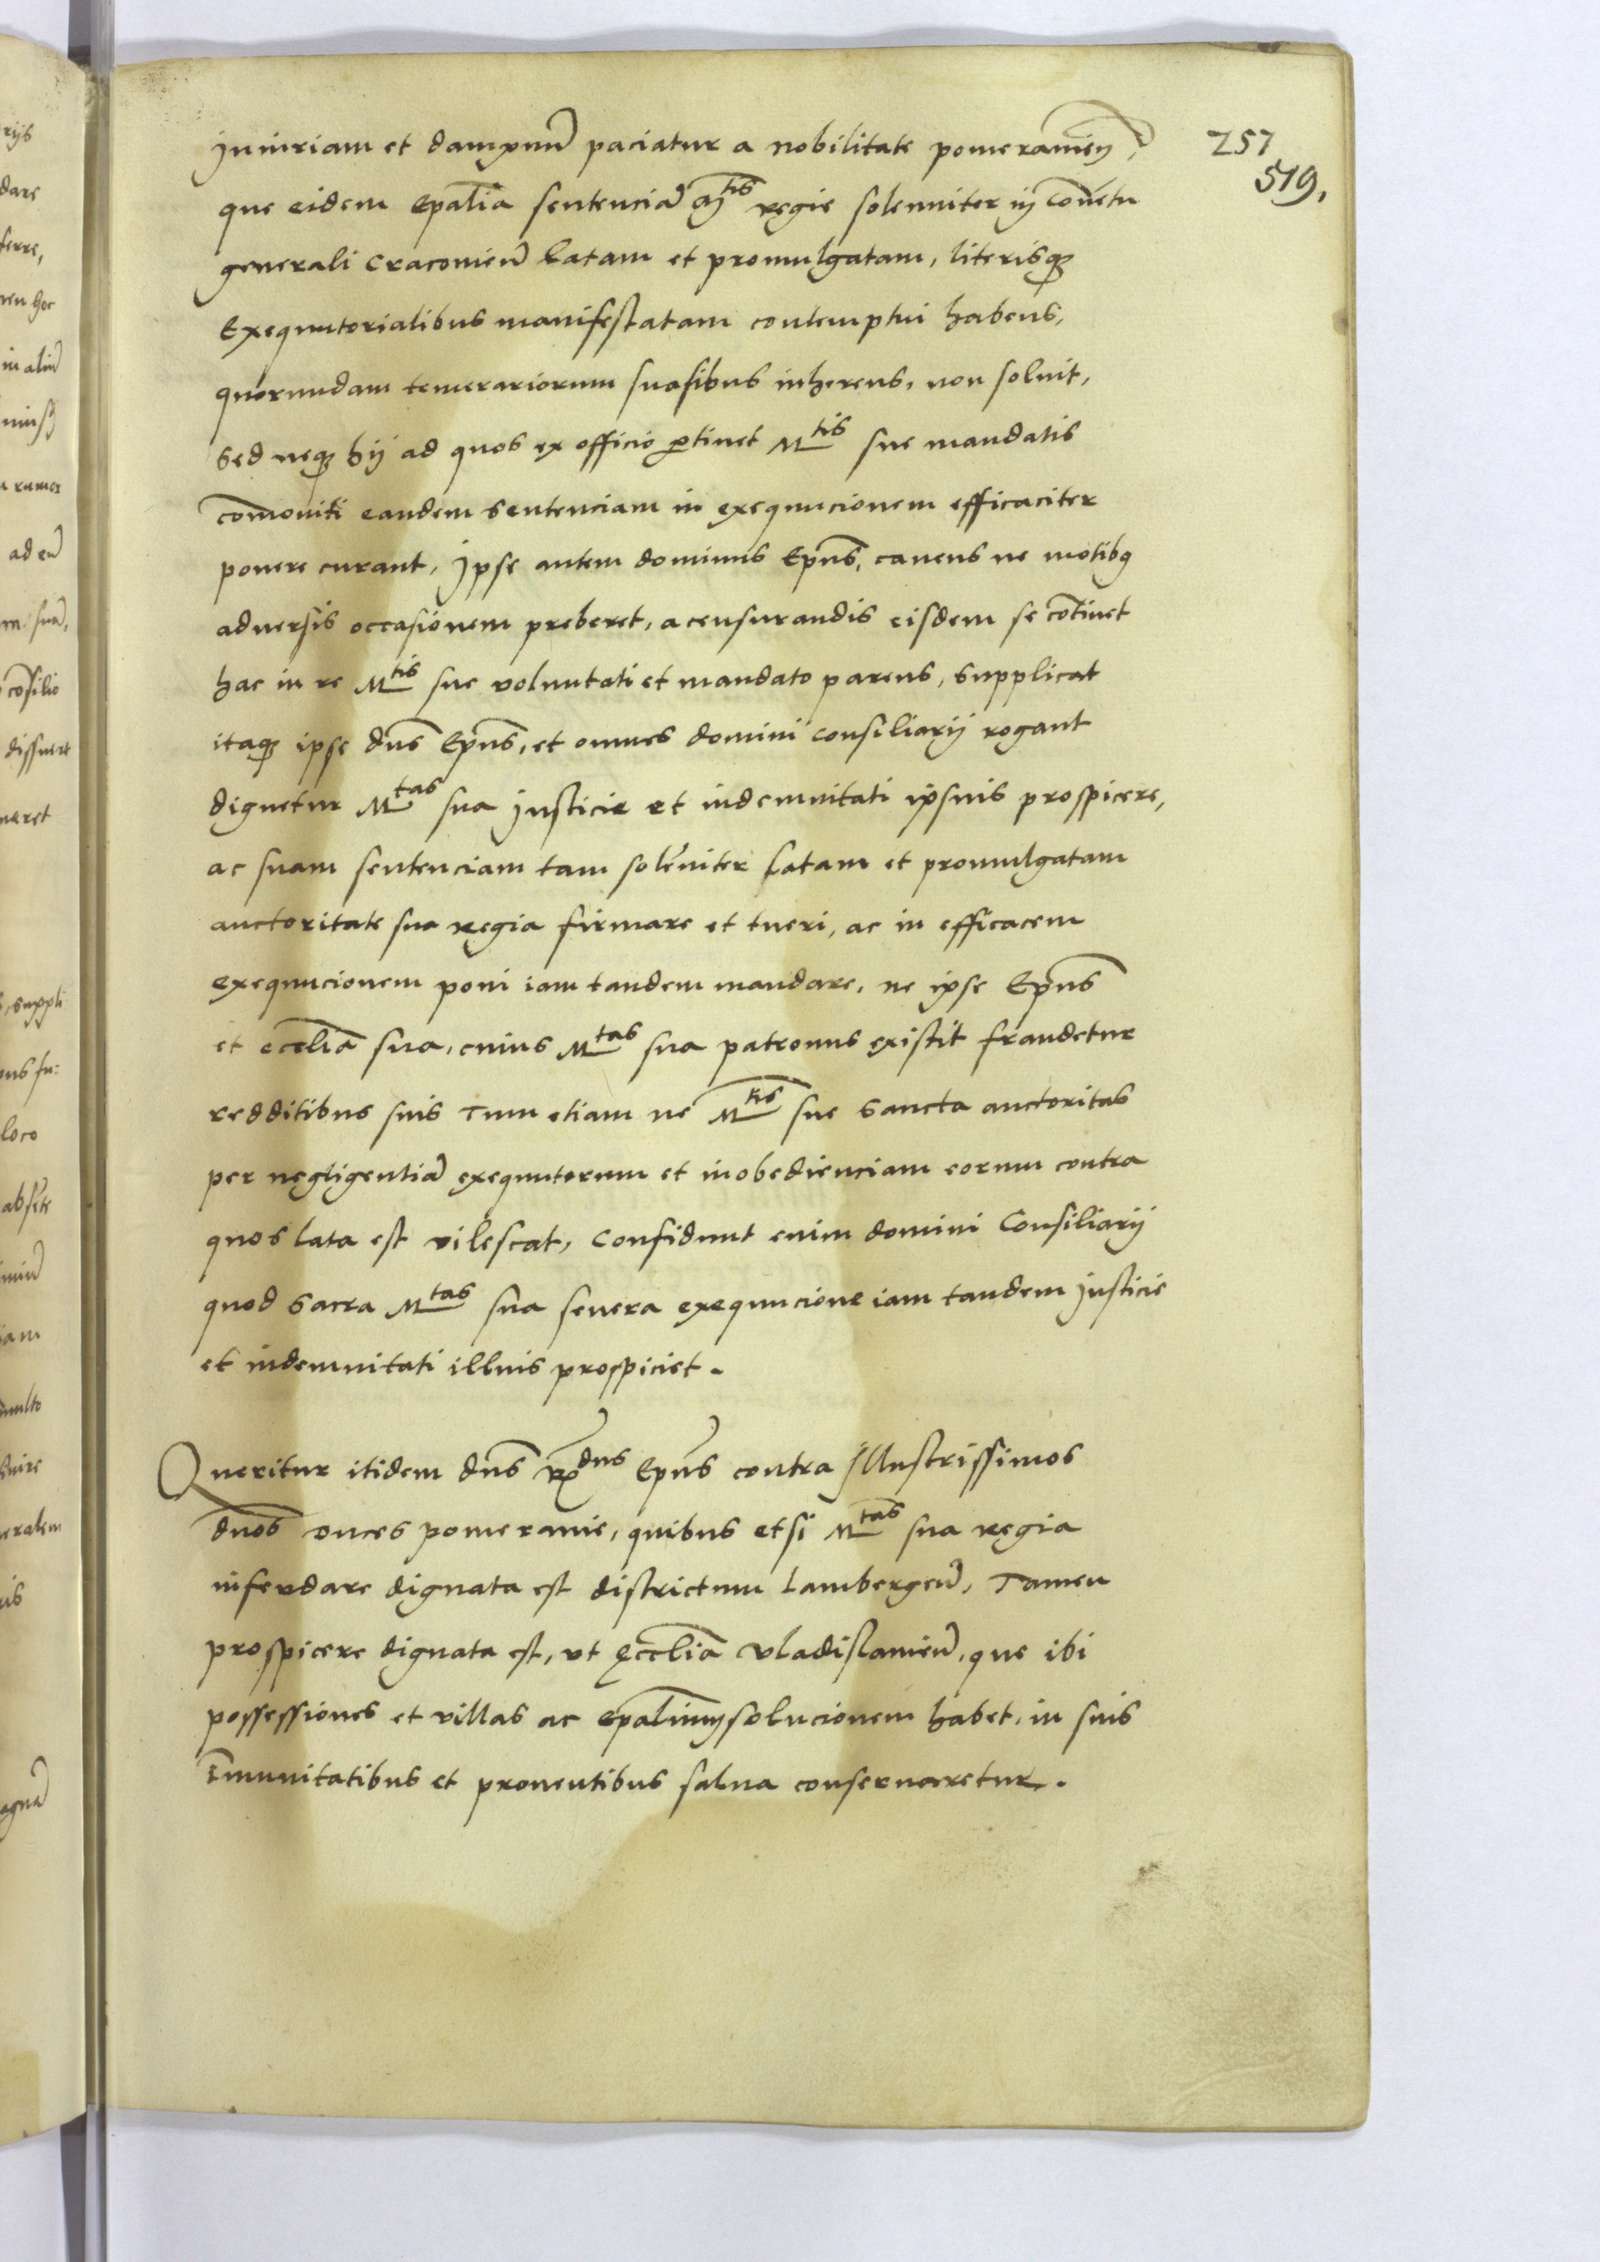 257
519.
Iniuriam et dampnũ paciatur a nobilitate pomeranieñ,
que eidem epalia sentenciã Mtis regie solenniter in Convẽtu
generali Cracovieñ latam et promulgatam, literisq;
Exequutorialibus manifestatam contemptui habens,
quorundam temerariorum suasibus inherens, non solvit,
Sed neq; hij ad quos ex officio ꝑtinet Mtis sue mandatis
com̃oniti eandem sentenciam in exequucionem efficaciter
ponere curant, Ipse autem dominus Epũs, cavens ne motibq
adversis occasionem preberet, a censurandis eisdem se cõtinet
hac in re Mtis sue voluntati et mandato parens, supplicat
itaq; ipse dñs Epũs, et omnes domini consiliarij rogant
dignetur Mtas sua Iusticie et indemnitati ipsius prospicere,
ac suam sentenciam tam solẽniter latam et promulgatam
auctoritate sua regia firmare et tueri, ac in efficacem
exequucionem poni iam tandem mandare, ne ipse Epũs
et ecclia sua, cuius Mtas sua patronus existit fraudetur
redditibus suis Tum etiam ne Mtis sue sancta auctoritas
per negligentiã exequutorum et inobedienciam eorum contra
quos lata est vilescat, Confidunt enim domini Consiliarij
quod Sacra Mtas sua severa exequucione iam tandem Iusticie
et indemnitati illius prospiciet.
Queritur itidem dñs Rdus Epũs contra Illustrissimos
dños Duces pomeranie, quibus etsi Mtas sua regia
infeudare dignata est districtum Lambergeñ, Tamen
prospicere dignata est, ut Ecclia Vladislavieñ, que ibi
possessiones et villas ac epalium solucionem habet, in suis
Im̃unitatibus et proventibus salva conservaretur.